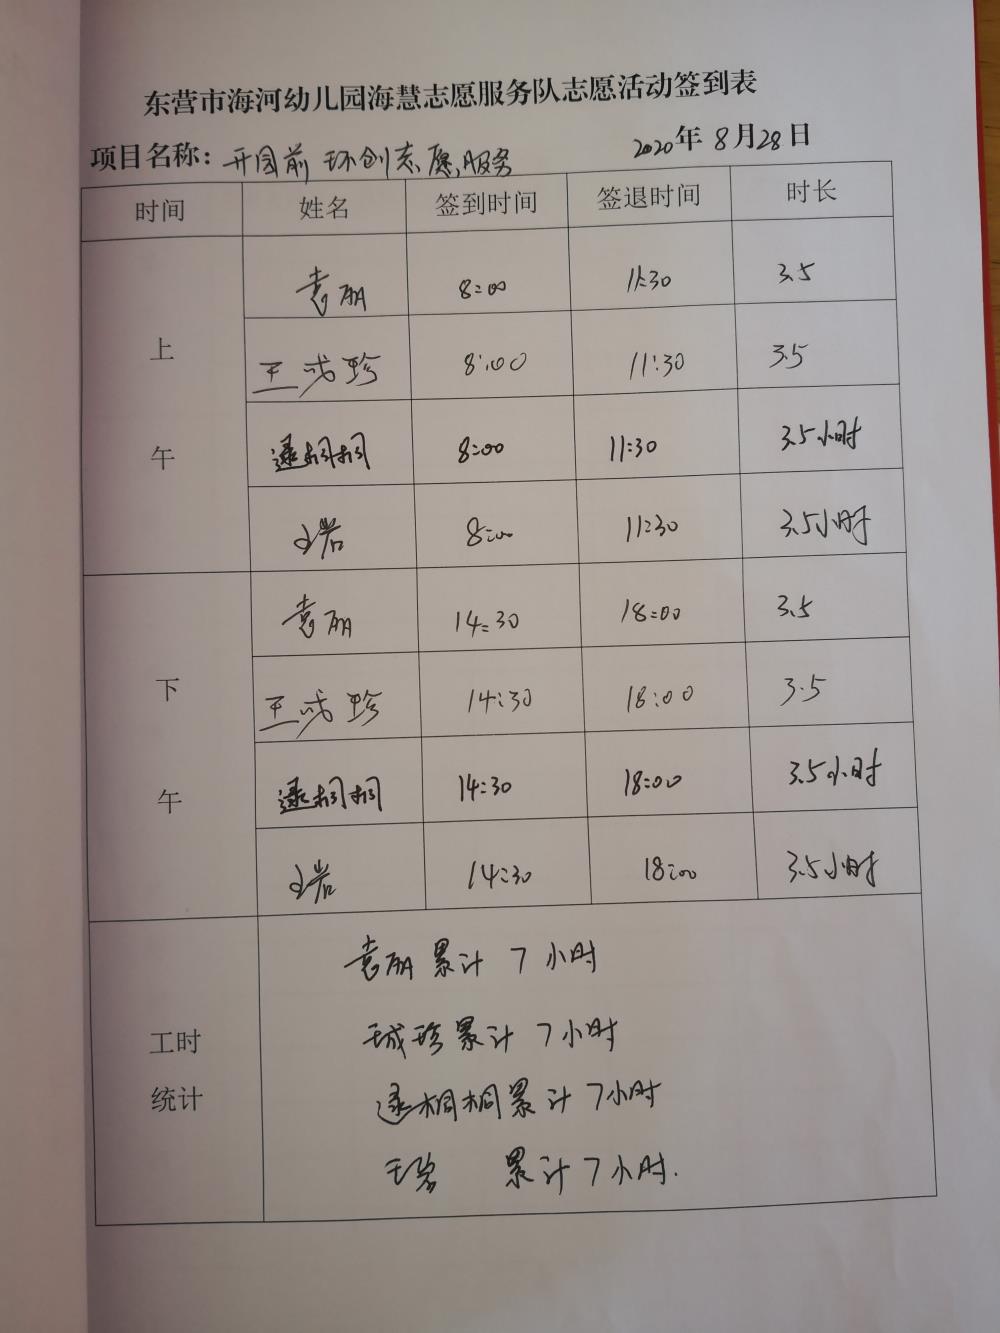 东营市海河幼儿园海慧志愿服务队志愿活动签到表
项目名称：开园前环创志愿服务 2020年8月28日
时间 姓名 签到时间 签退时间 时长
上午
袁丽 8:00 11:30 3.5
王成珍 8:00 11:30 3.5
逯桐桐 8:00 11:30 3.5小时
王岩 8:00 11:30 3.5小时
下午
袁丽 14:30 18:00 3.5
王成珍 14:30 18:00 3.5
逯桐桐 14:30 18:00 3.5小时
王岩 14:30 18:00 3.5小时
工时
统计
袁丽累计 7小时
王成珍累计 7小时
逯桐桐累计 7小时
王岩 累计7小时.